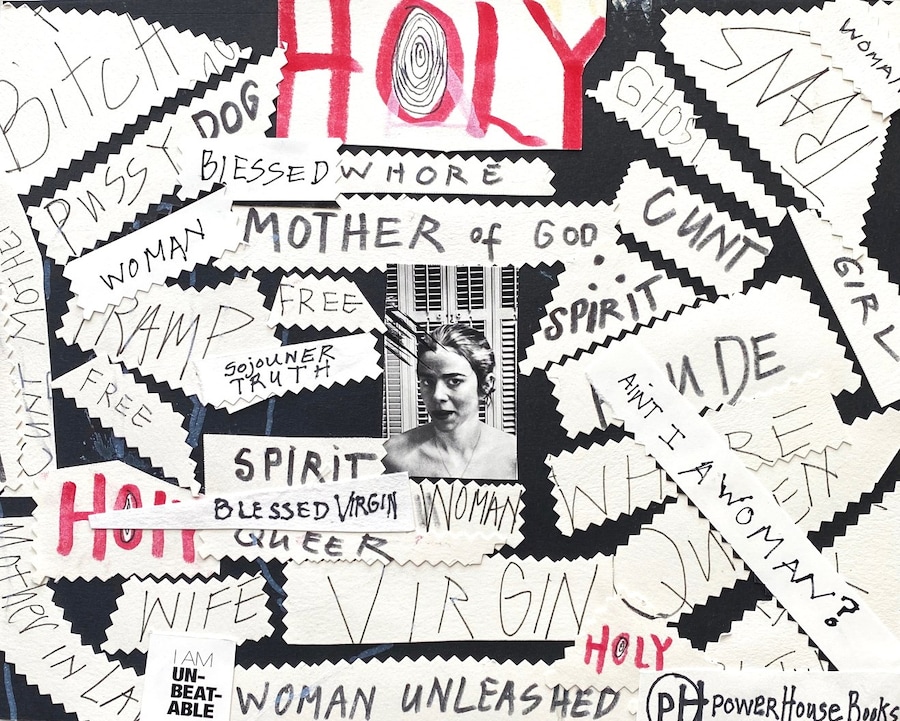 Bitch
HOLY
WOMAN
TRANS
DOG
GHOST
PUSSY
BLESSED WHORE
MOTHER of GOD
CUNT
WOMAN
GIRL
SPIRIT
CUNT MOTHER
TRAMP
FREE
SOJOUNER
TRUTH
NUDE
FREE
AiNT I A WOMAN?
SPIRiT
WHORE
BLESSED VIRGIN
WOMAN
HOLY
QUEER
QUEEN
MOTHER IN LAW
WIFE
VIRGIN
HOLY
I AM
UN-
BEAT-
ABLE
WOMAN UNLEASHED
pH POWERHOUSE BOOKS